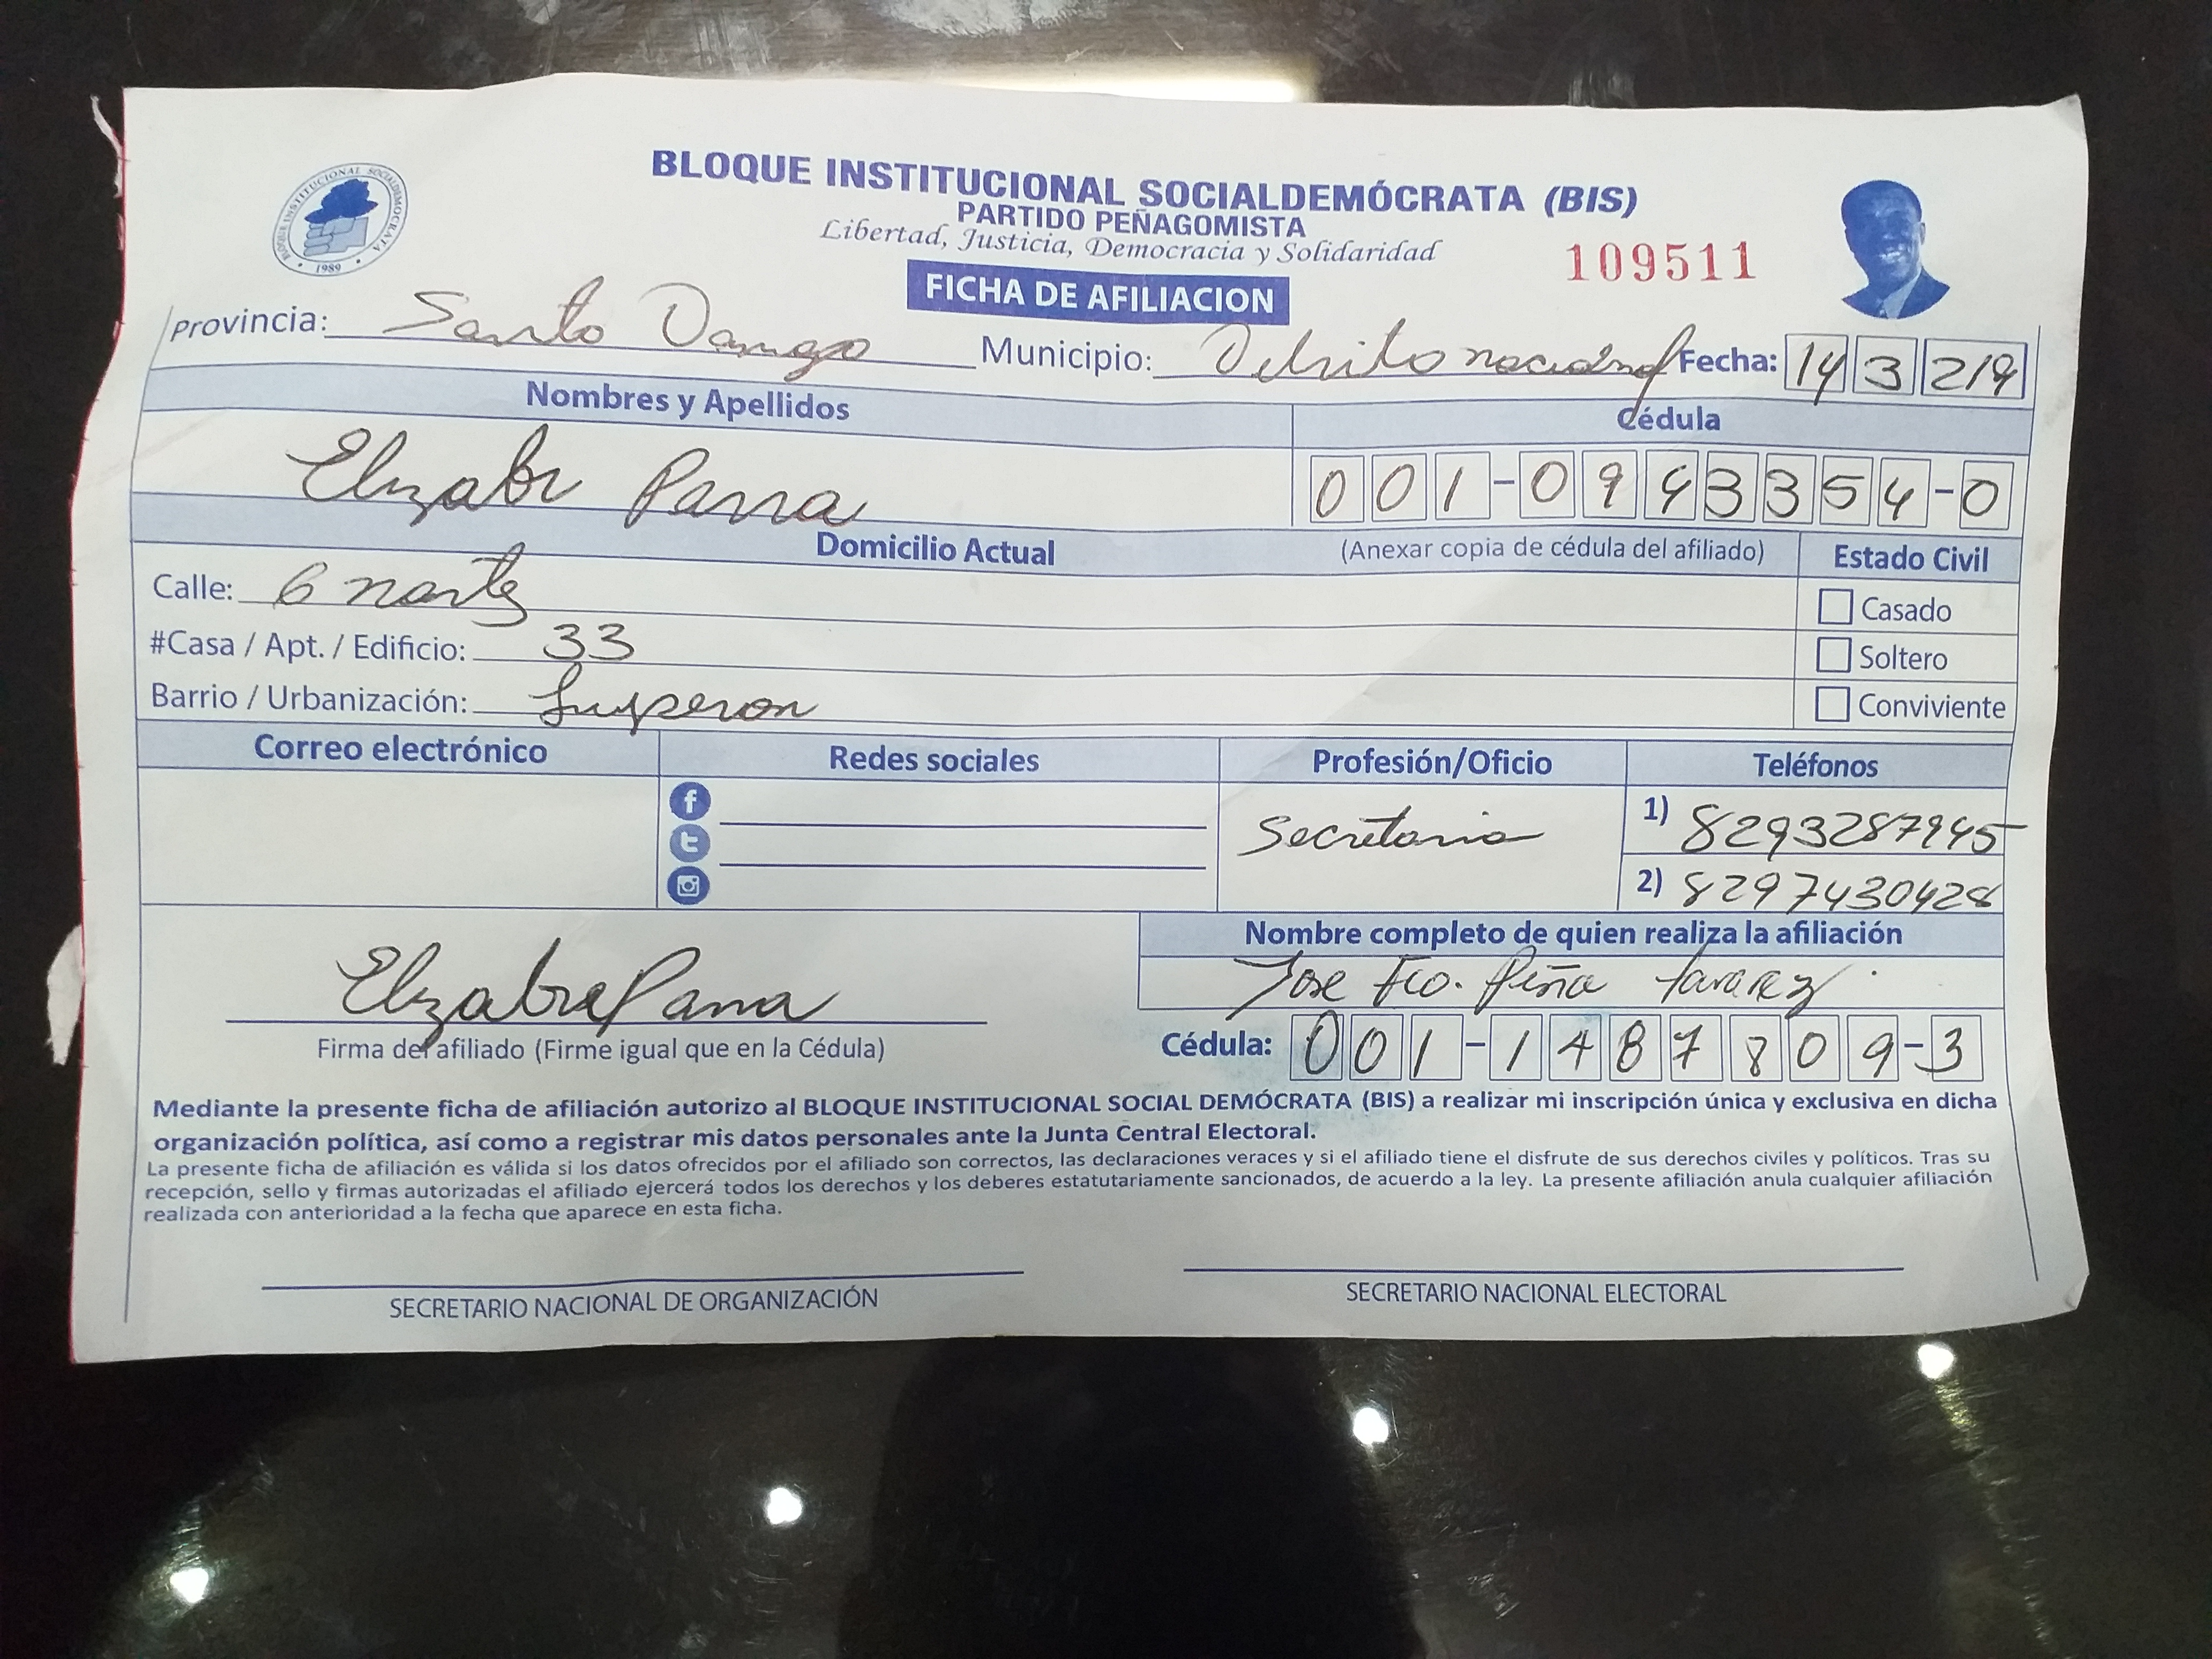 BLOQUE INSTITUCIONAL SOCIALDEMÓCRATA
1989
BLOQUE INSTITUCIONAL SOCIALDEMÓCRATA (BIS)
PARTIDO PEÑAGOMISTA
Libertad, Justicia, Democracia y Solidaridad
109511
FICHA DE AFILIACION
Provincia: Santo Municipio: Fecha: 14 3 219
Nombres y Apellidos Cédula
Parra 001-0943354-0
Domicilio Actual (Anexar copia de cédula del afiliado) Estado Civil
Calle: 6 norte Casado
#Casa / Apt. / Edificio: 33 Soltero
Barrio / Urbanización: Luperon Conviviente
Correo electrónico Redes sociales Profesión/Oficio Teléfonos
Secretaria 1) 8293287945
2) 8297430428
Nombre completo de quien realiza la afiliación
Jose Fco. Peña Tavarez
Parra
Firma del afiliado (Firme igual que en la Cédula) Cédula: 001-1487809-3
Mediante la presente ficha de afiliación autorizo al BLOQUE INSTITUCIONAL SOCIAL DEMÓCRATA (BIS) a realizar mi inscripción única y exclusiva en dicha
organización política, así como a registrar mis datos personales ante la Junta Central Electoral.
La presente ficha de afiliación es válida si los datos ofrecidos por el afiliado son correctos, las declaraciones veraces y si el afiliado tiene el disfrute de sus derechos civiles y políticos. Tras su
recepción, sello y firmas autorizadas el afiliado ejercerá todos los derechos y los deberes estatutariamente sancionados, de acuerdo a la ley. La presente afiliación anula cualquier afiliación
realizada con anterioridad a la fecha que aparece en esta ficha.
SECRETARIO NACIONAL DE ORGANIZACIÓN SECRETARIO NACIONAL ELECTORAL